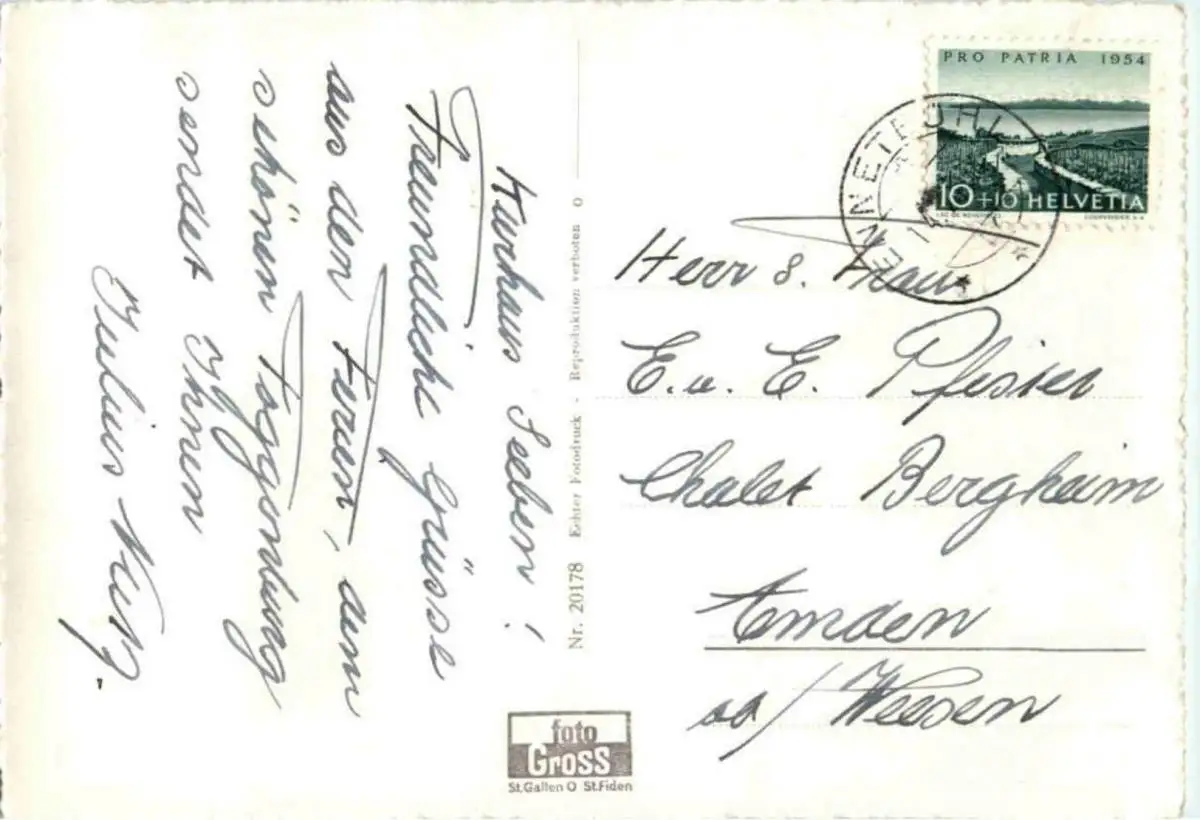 Kurhaus Seeben!
Freundliche Grüsse
aus den Ferien, dem
schönen Toggenburg
sendet Ihnen
Julius
Nr. 20178 Echter Fotodruck - Reproduktion verboten o
foto
Gross
St.Gallen O St.Fiden
PRO PATRIA 1954
10+10 HELVETIA
LAC DE NEUCHATEL COURVOISIER S.A.
ENNETBÜHL
Herr & Frau
E. u. E. Pfister
Chalet Bergheim
Amden
ob/Weesen